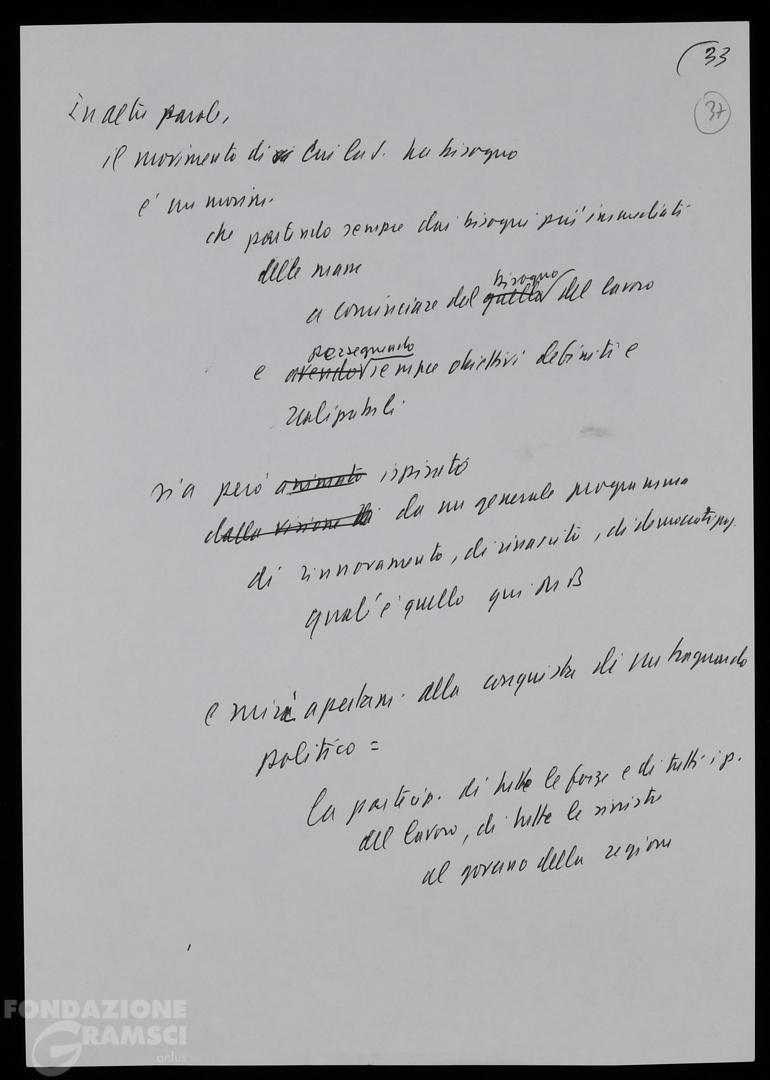 33
37
In altre parole,
il movimento di cui la S. ha bisogno
è un movim.
che partendo sempre dai bisogni più immediati
delle masse
bisogno
a cominciare dal quello del lavoro
perseguendo
e avendo sempre obiettivi definiti e
realizzabili
sia però animato ispirato
dalla visione di da un generale programma
di rinnovamento, di rinascita, di
qual è quello qui
e mira apertam. alla conquista di un traguardo
politico =
la partecip. di tutte le forze e di tutti i p.
del lavoro, di tutte le sinistre
al governo della regione
FONDAZIONE
GRAMSCI
onlus